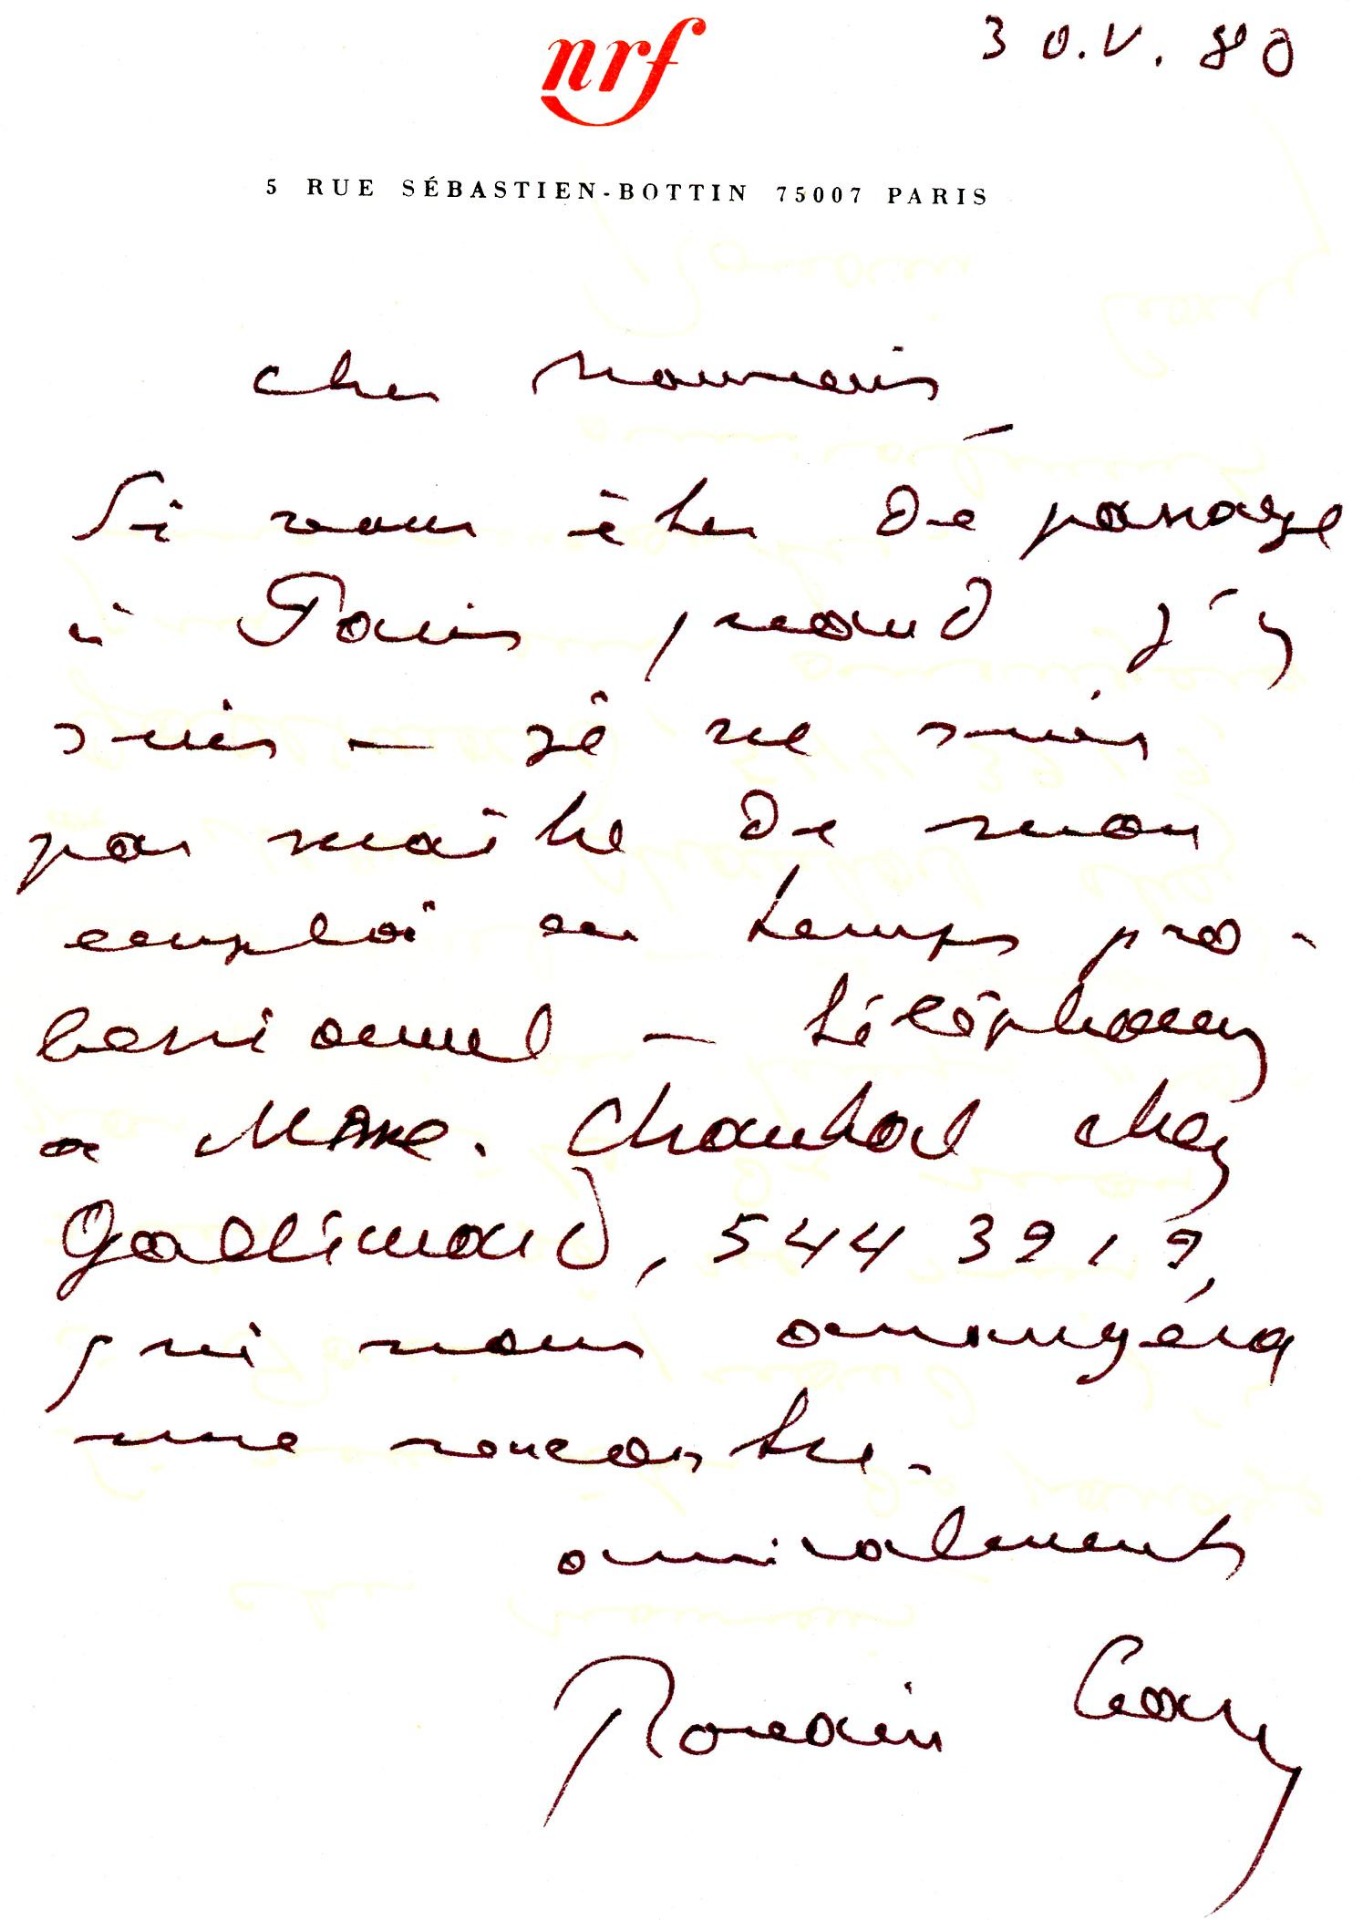 nrf
30.V.80
5 RUE SÉBASTIEN-BOTTIN 75007 PARIS
cher
Si vous êtes de passage
à Paris quand j'y
suis — je ne suis
pas maître de mon
emploi du temps pro-
fessionnel — téléphonez
à Mme. chez
Gallimard, 544 3919,
qui nous arrangera
une rencontre.
amicalement
Romain Gary